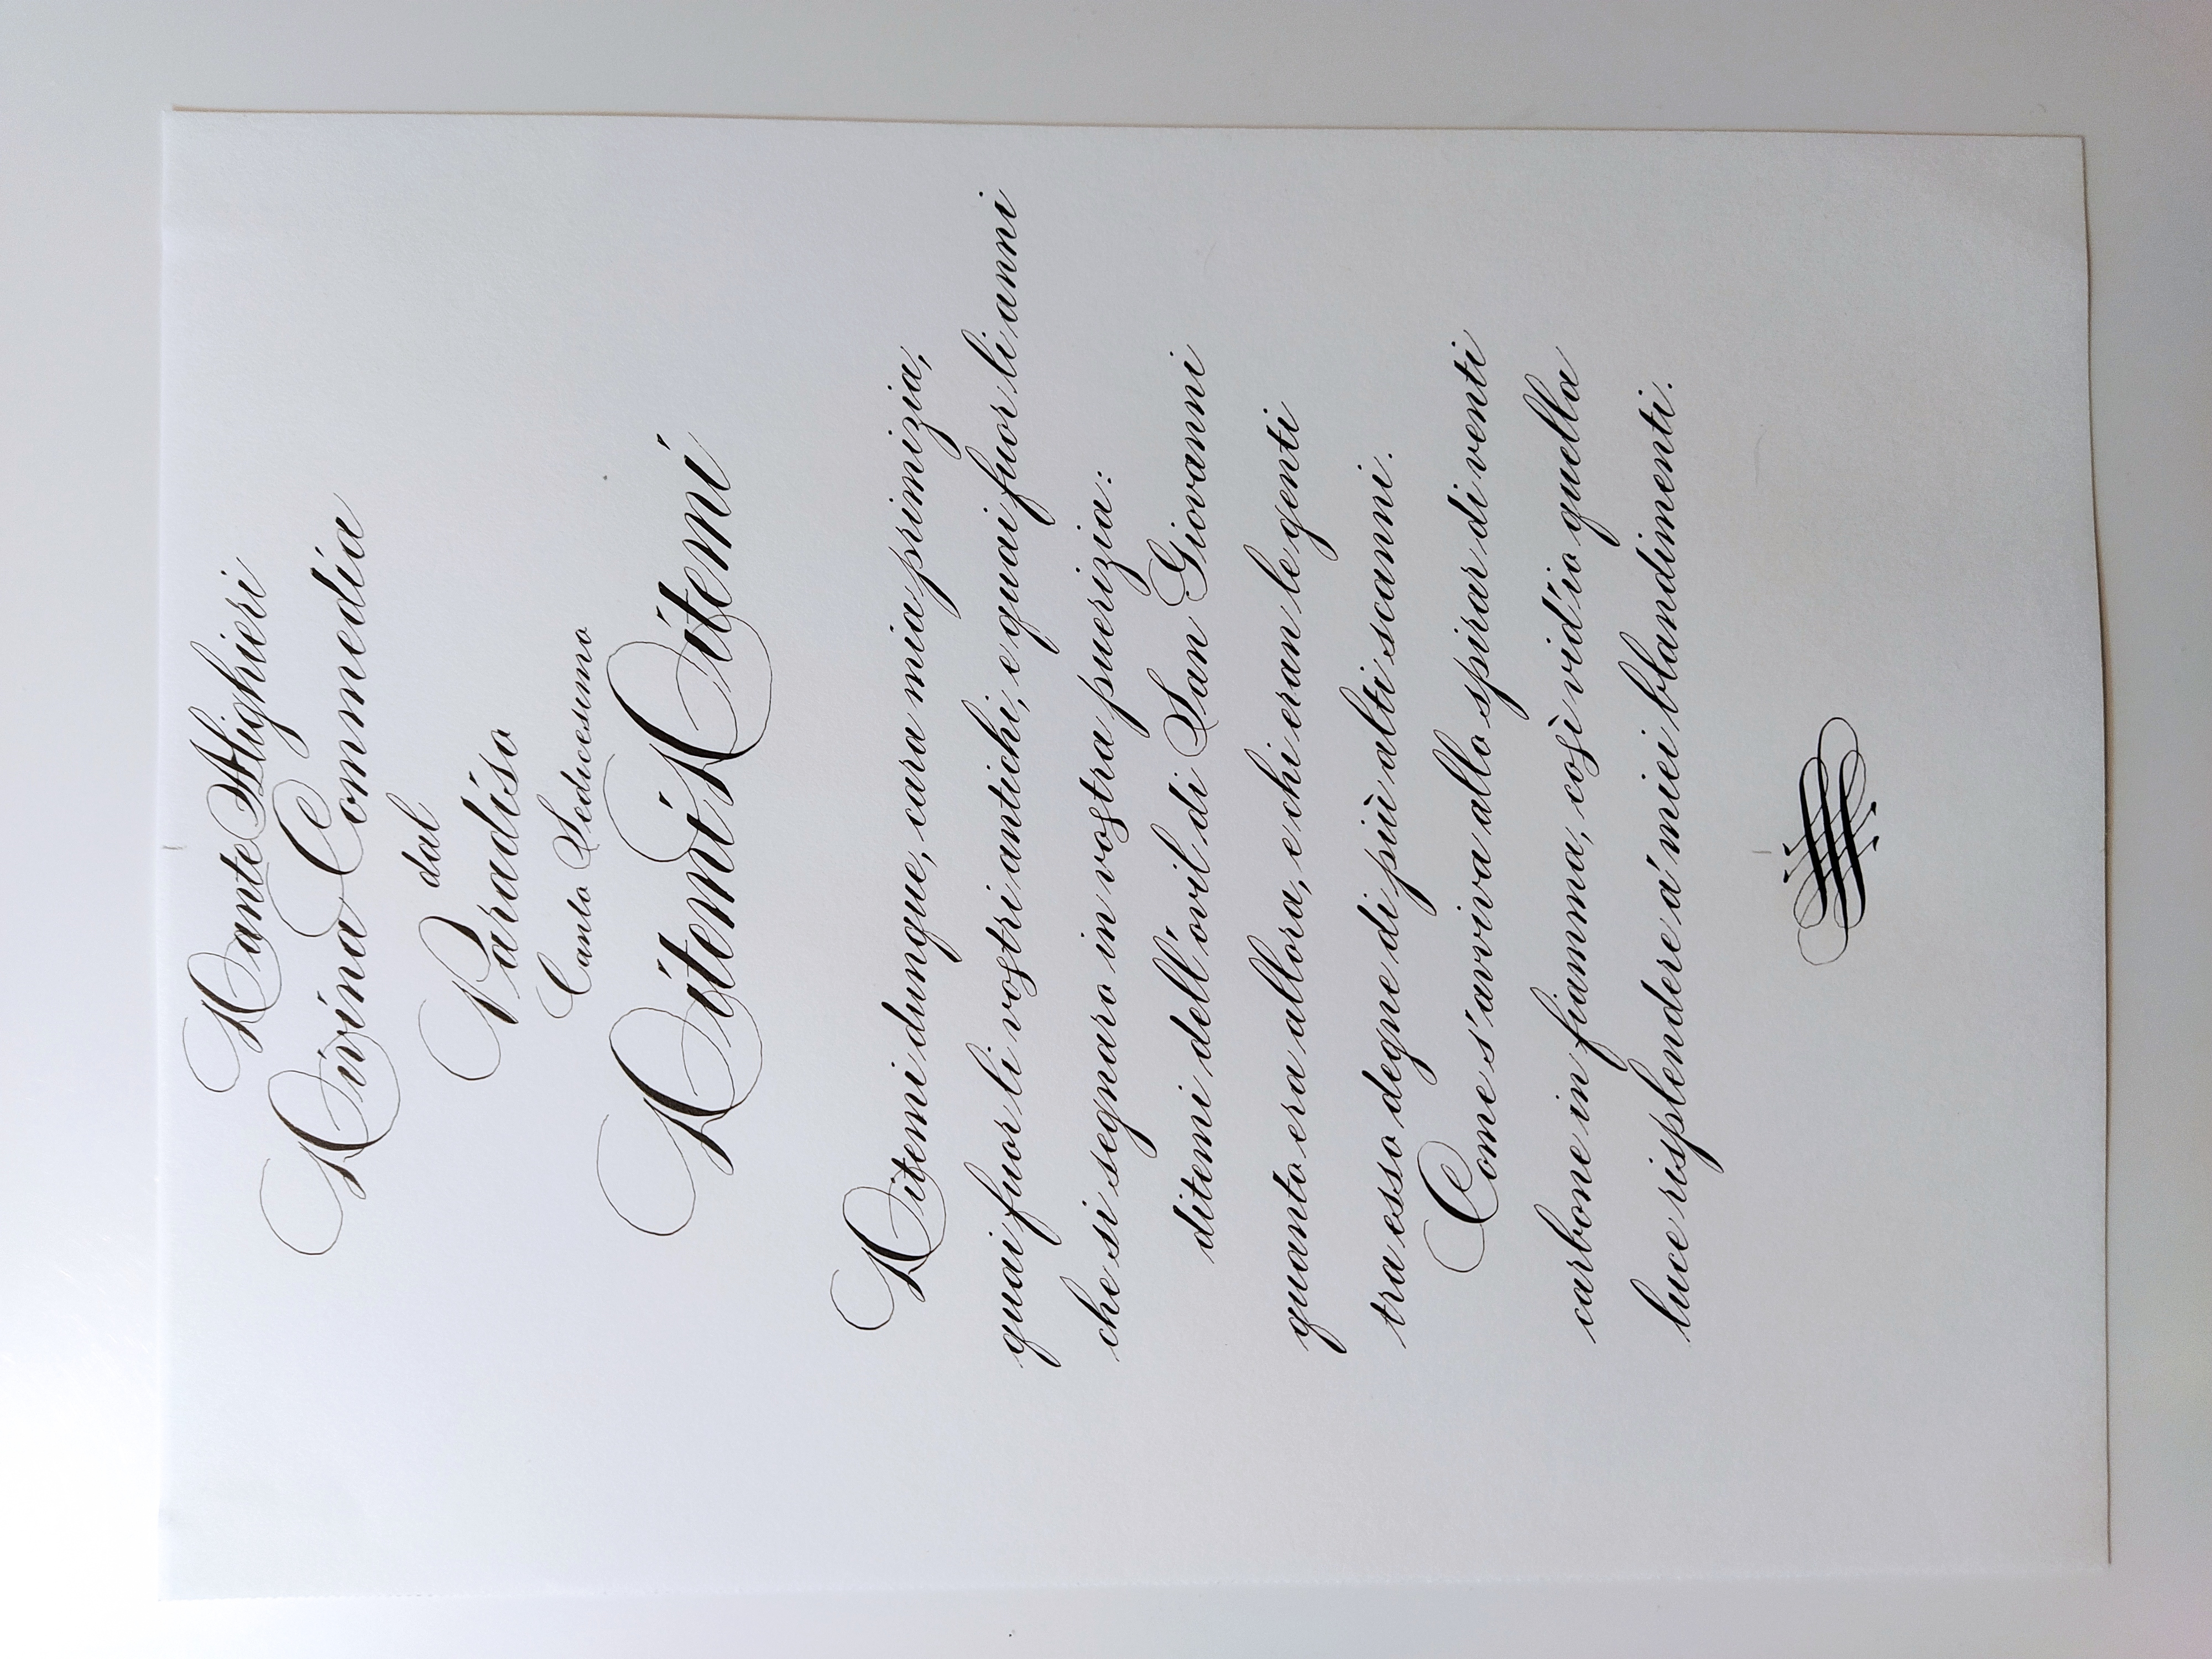 Dante Alighieri
Divina Commedia
dal
Paradiso
Canto Sedicesimo
Ditemi Ditemi
Ditemi dunque, cara mia primizia,
quai fuor li vostri antichi, e quai fuor li anni
che si segnaro in vostra puerizia:
ditemi dell'ovil di San Giovanni
quanto era allora, e chi eran le genti
tra esso degne di più alti scanni.
Come s'avviva allo spirar di venti
carbone in fiamma, così vid'io quella
luce risplendere a' miei blandimenti.